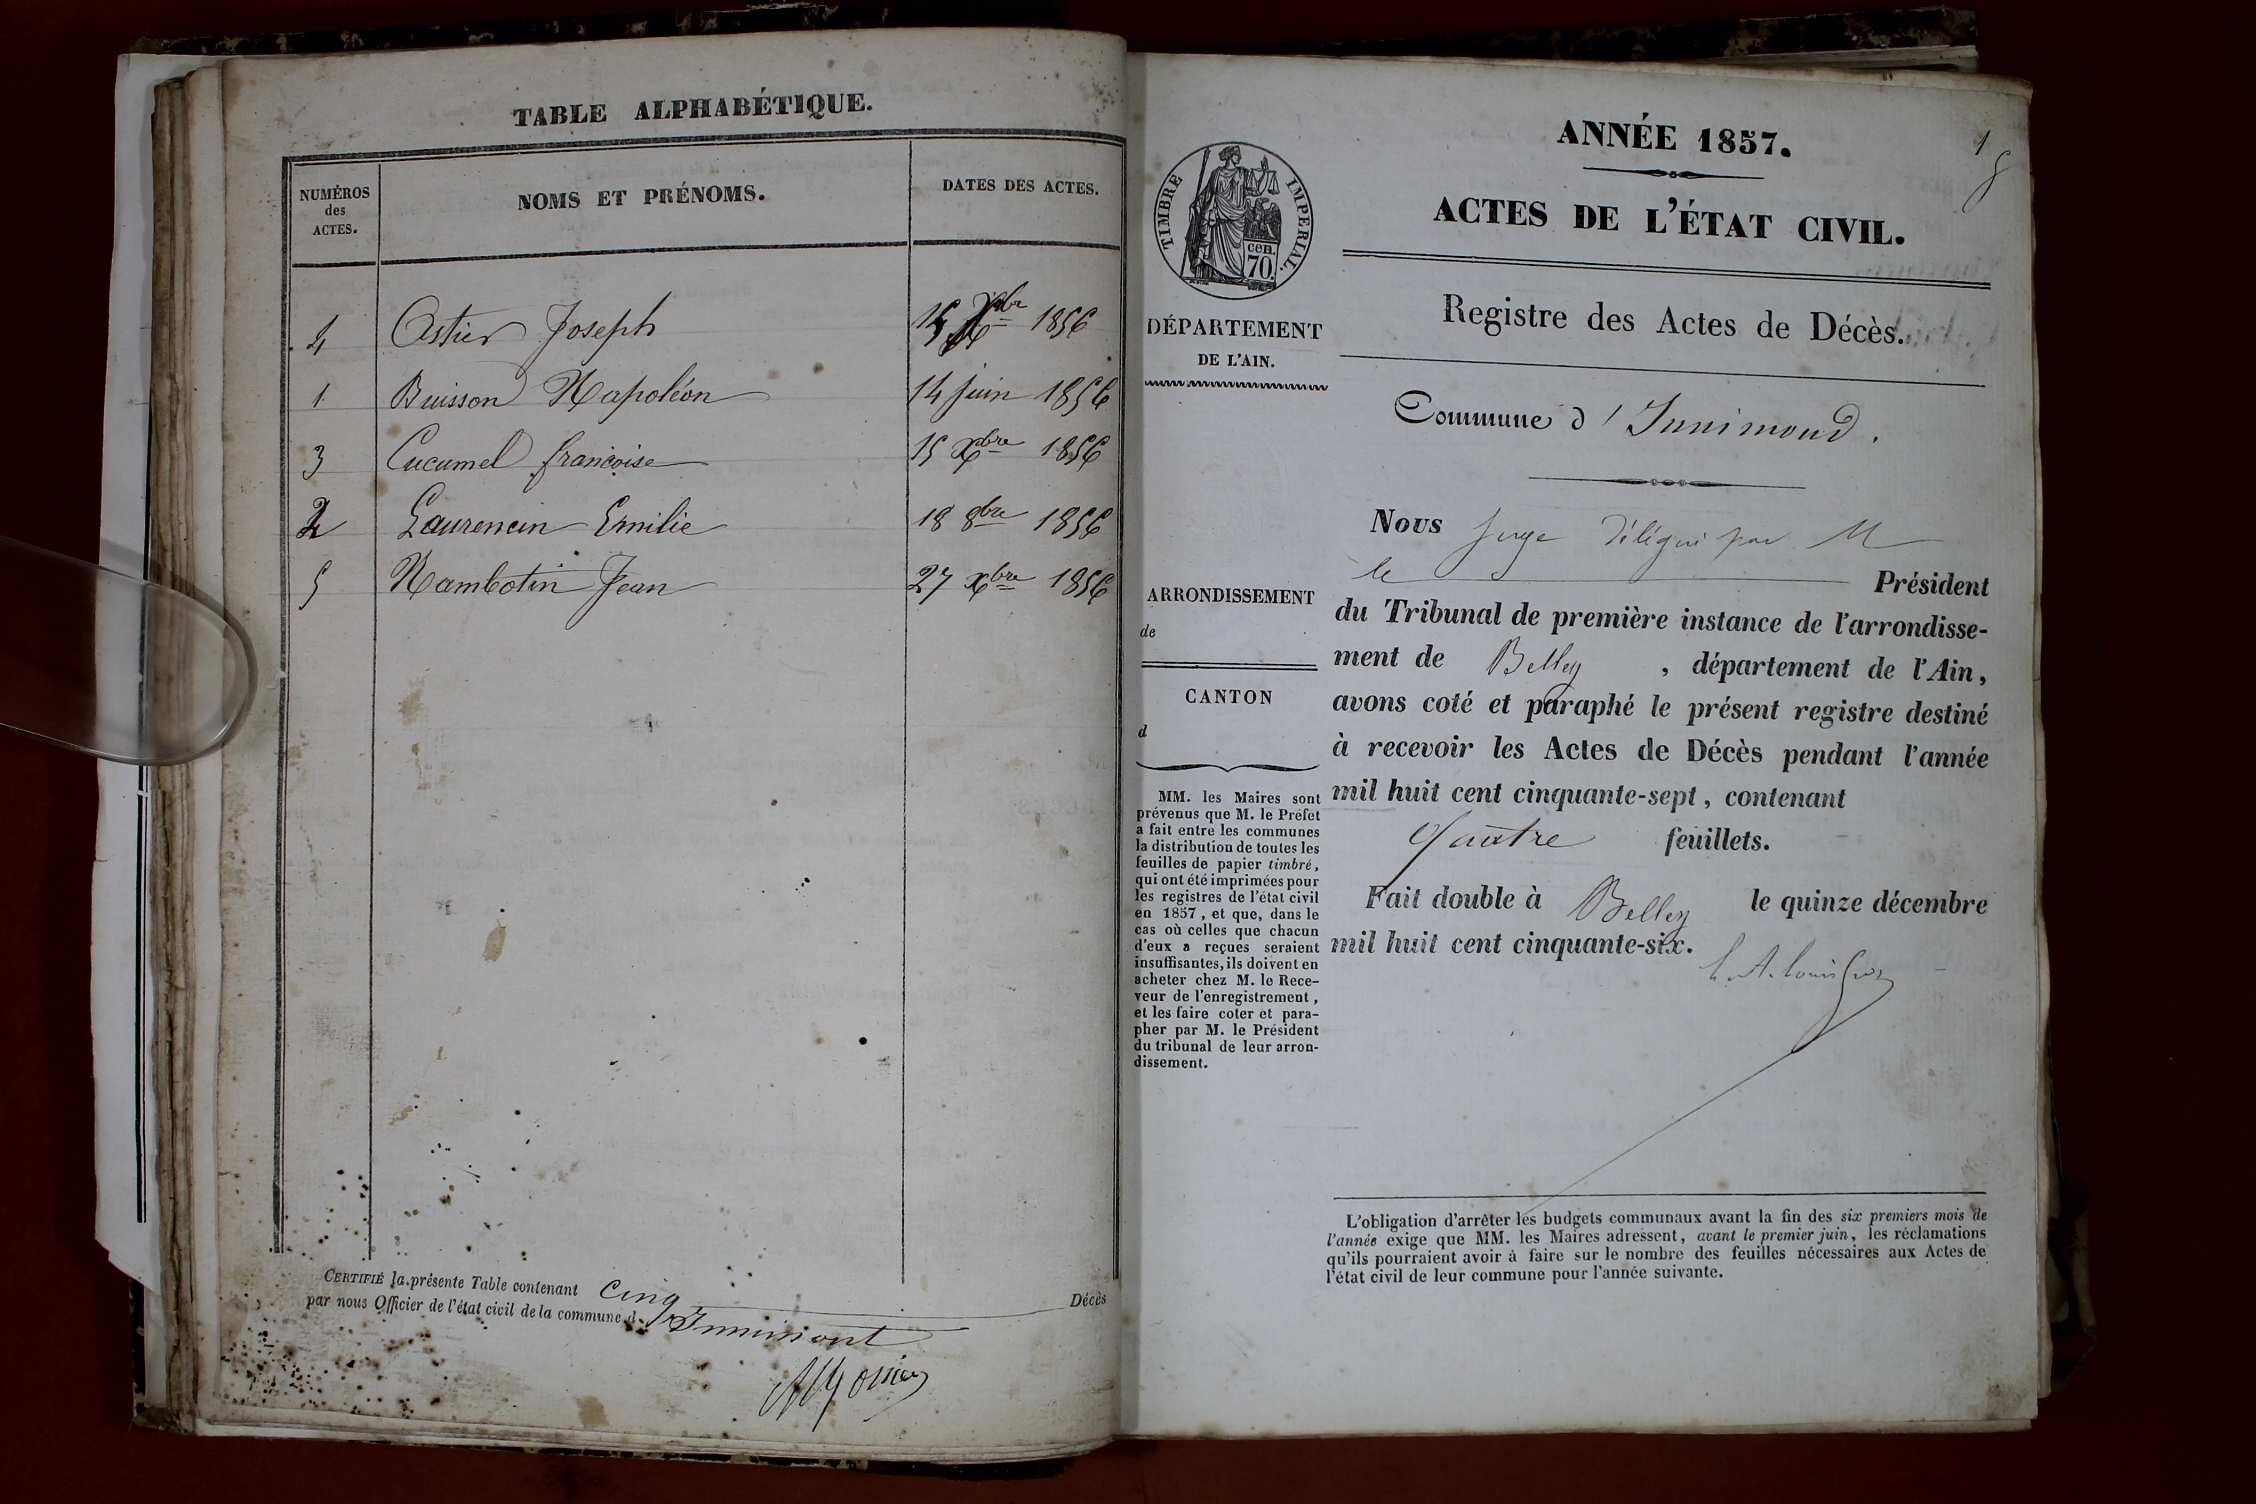 TABLE ALPHABÉTIQUE.
NUMÉROS
des
ACTES.
NOMS ET PRÉNOMS.
DATES DES ACTES.
4 Astier Joseph 15 Xbre 1856
1 Buisson Napoléon 14 juin 1856
3 Cucumel françoise 15 Xbre 1856
2 Laurencin Emilie 18 8bre 1856
5 Nambotin Jean 27 Xbre 1856
CERTIFIÉ la présente Table contenant Cinq Décès
par nous Officier de l'état civil de la commune d'Innimont
1
ANNÉE 1857.
ACTES DE L'ÉTAT CIVIL.
TIMBRE IMPERIAL.
cen.
70.
DÉPARTEMENT
DE L'AIN.
ARRONDISSEMENT
de
CANTON
d
MM. les Maires sont
prévenus que M. le Préfet
a fait entre les communes
la distribution de toutes les
feuilles de papier timbré,
qui ont été imprimées pour
les registres de l'état civil
en 1857, et que, dans le
cas où celles que chacun
d'eux a reçues seraient
insuffisantes, ils doivent en
acheter chez M. le Rece-
veur de l'enregistrement,
et les faire coter et para-
pher par M. le Président
du tribunal de leur arron-
dissement.
Registre des Actes de Décès.
Commune d'Innimond.
Nous Juge délégué par M
le Président
du Tribunal de première instance de l'arrondisse-
ment de Belley, département de l'Ain,
avons coté et paraphé le présent registre destiné
à recevoir les Actes de Décès pendant l'année
mil huit cent cinquante-sept, contenant
Quatre feuillets.
Fait double à Belley le quinze décembre
mil huit cent cinquante-six.
L'obligation d'arrêter les budgets communaux avant la fin des six premiers mois de
l'année exige que MM. les Maires adressent, avant le premier juin, les réclamations
qu'ils pourraient avoir à faire sur le nombre des feuilles nécessaires aux Actes de
l'état civil de leur commune pour l'année suivante.